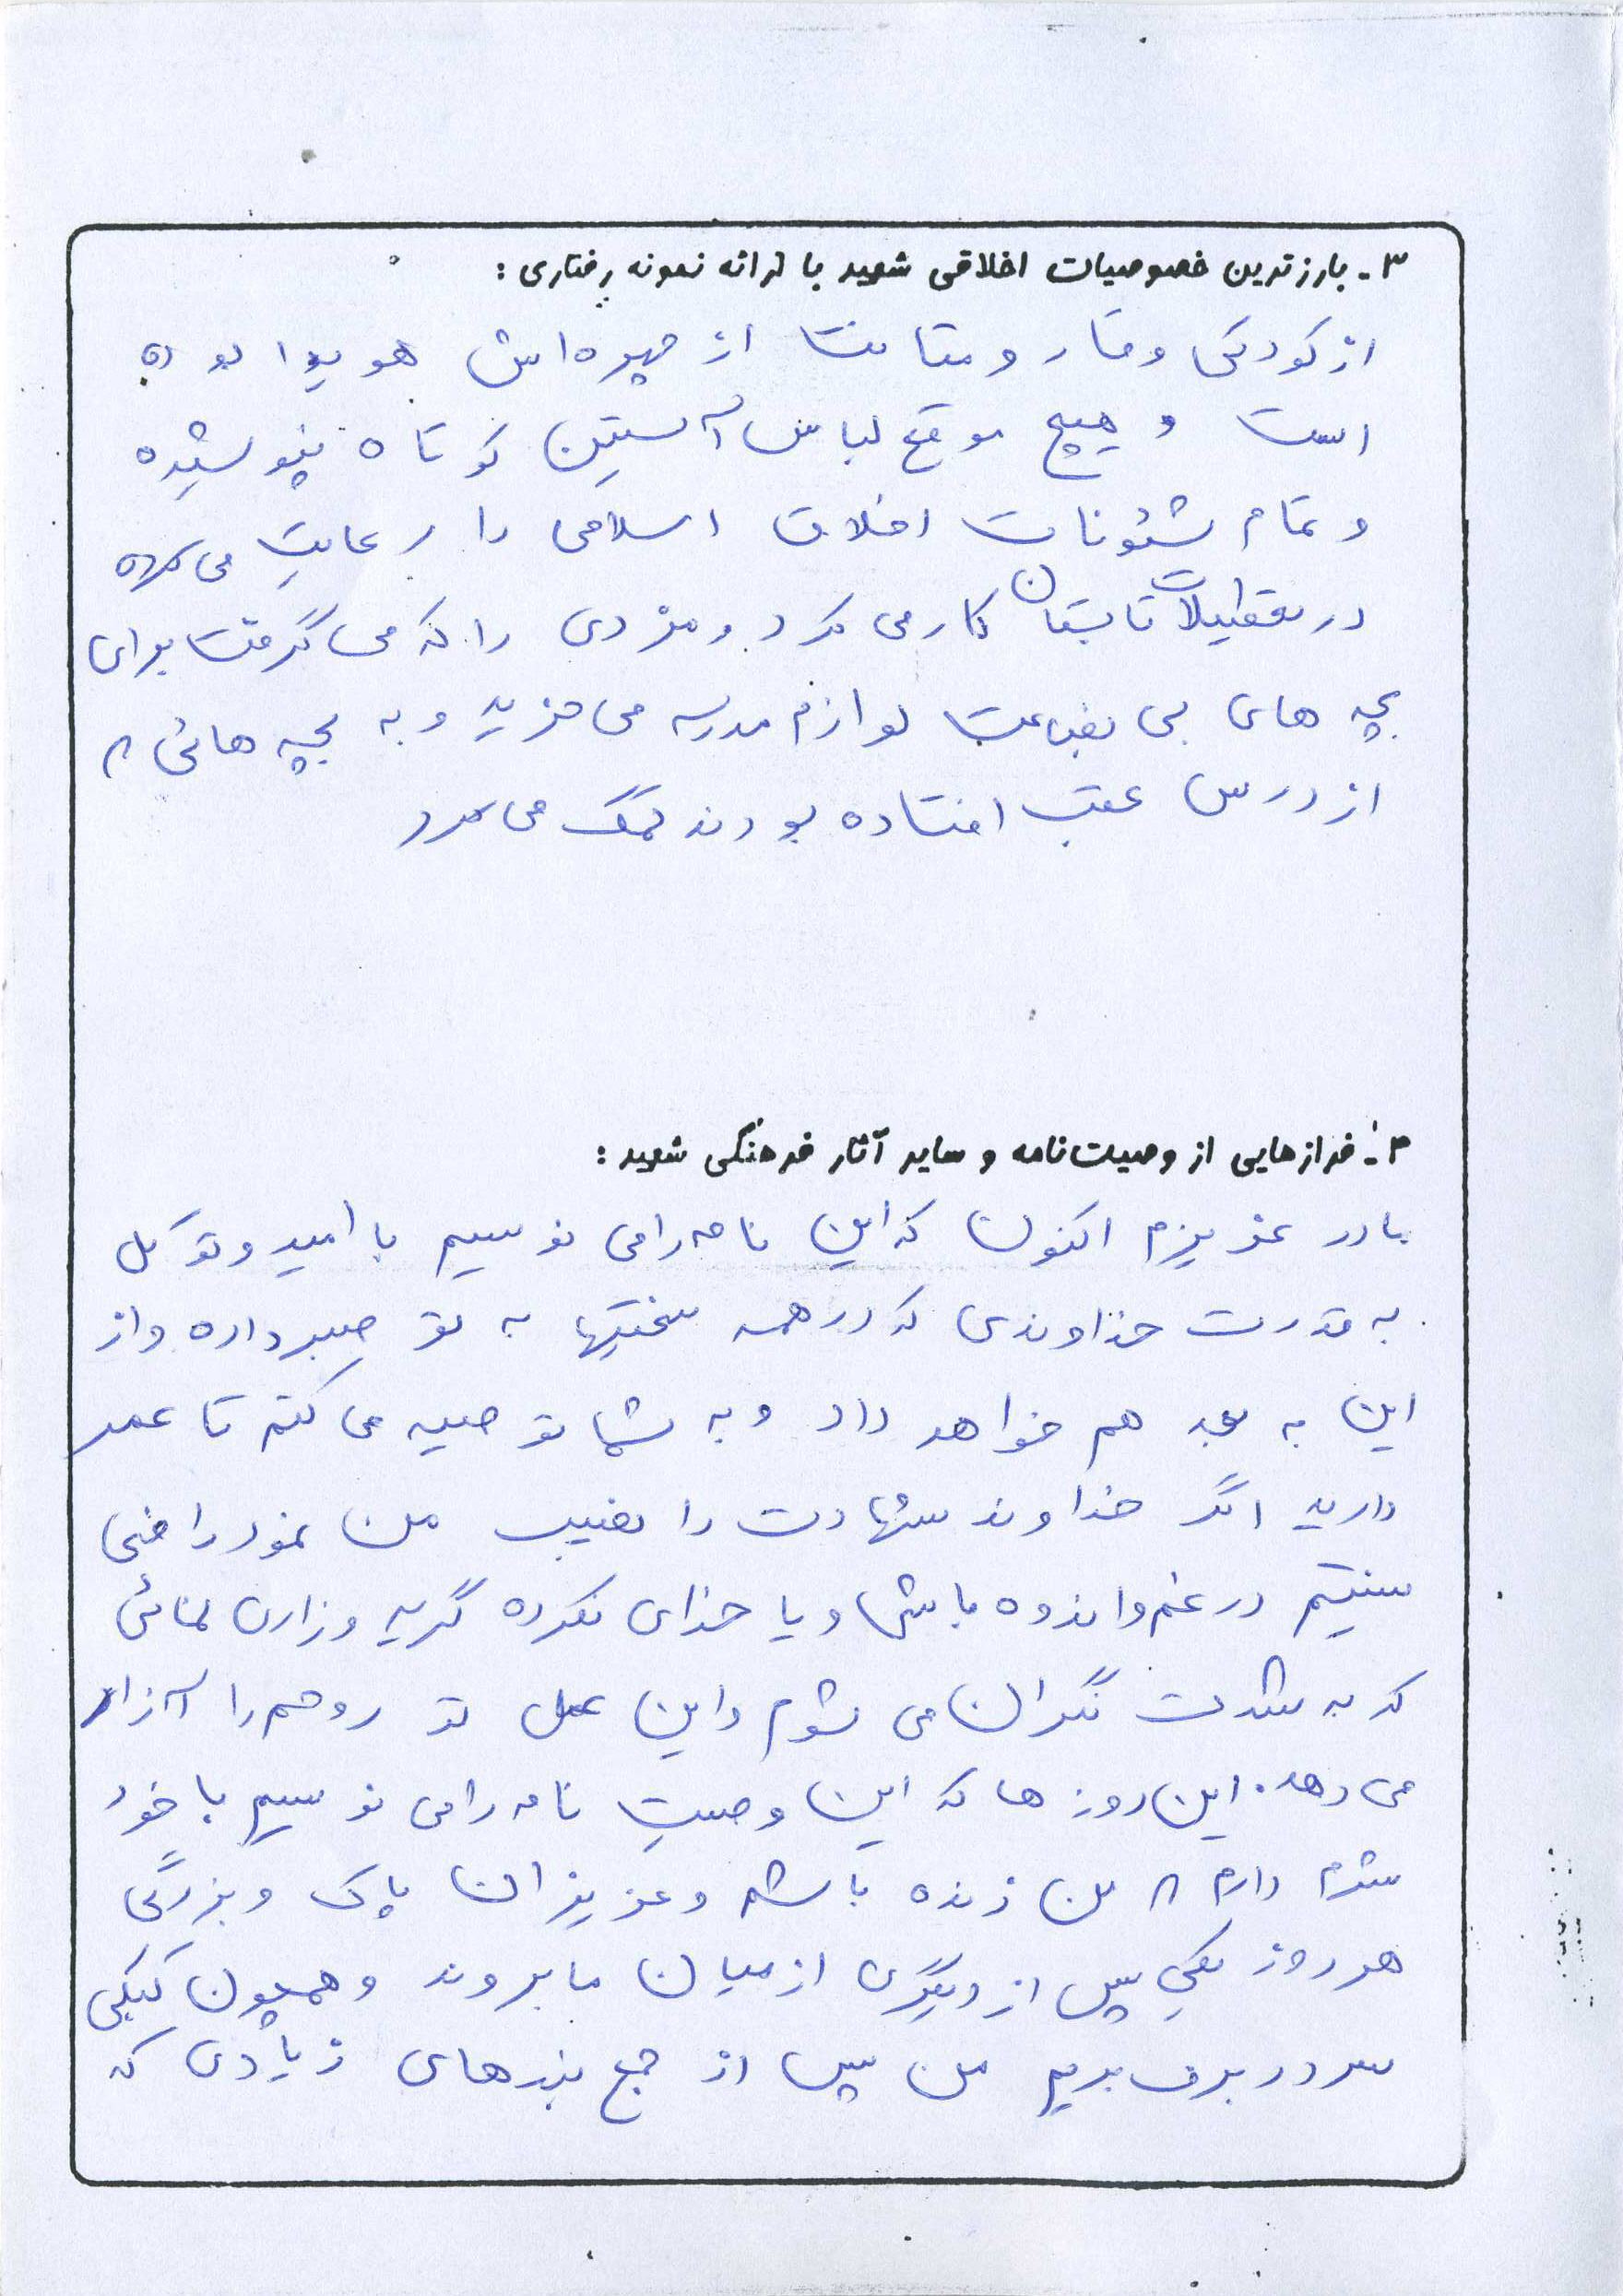 ۳- بارزترین خصوصیات اخلاقی شهید با ارائه نمونه رفتاری:
از کودکی وقار و متانت از چهره‌اش هویدا بوده
است و هیچ موقع لباس آستین کوتاه نپوشیده
و تمام شئونات اخلاق اسلامی را رعایت می‌کرده
در تعطیلات تابستان کار می کرد و مزدی را که می گرفت برای
بچه های بی بضاعت لوازم مدرسه می خرید و به بچه هائی که
از درس عقب افتاده بودند کمک می کرد
۴- فرازهایی از وصیت‌نامه و سایر آثار فرهنگی شهید:
مادر عزیزم اکنون که این نامه را می نویسم با امید و توکل
به قدرت خداوندی که در همه سختیها به تو صبر داده و از
این به بعد هم خواهد داد و به شما توصیه می کنم تا عمر
دارید اگر خداوند شهادت را نصیب من نمود راضی
نیستم در غم و اندوه باشی و یا خدای نکرده گریه و زاری نمائی
که به شدت نگران می شوم و این عمل تو روحم را آزار
می دهد. این روزها که این وصیت نامه را می نویسم با خود
شرم دارم که من زنده باشم و عزیزان پاک و بزرگی
هر روز یکی پس از دیگری از میان ما بروند و همچون کبکی
سر در برف بریم من پس از جمع بندهای زیادی که